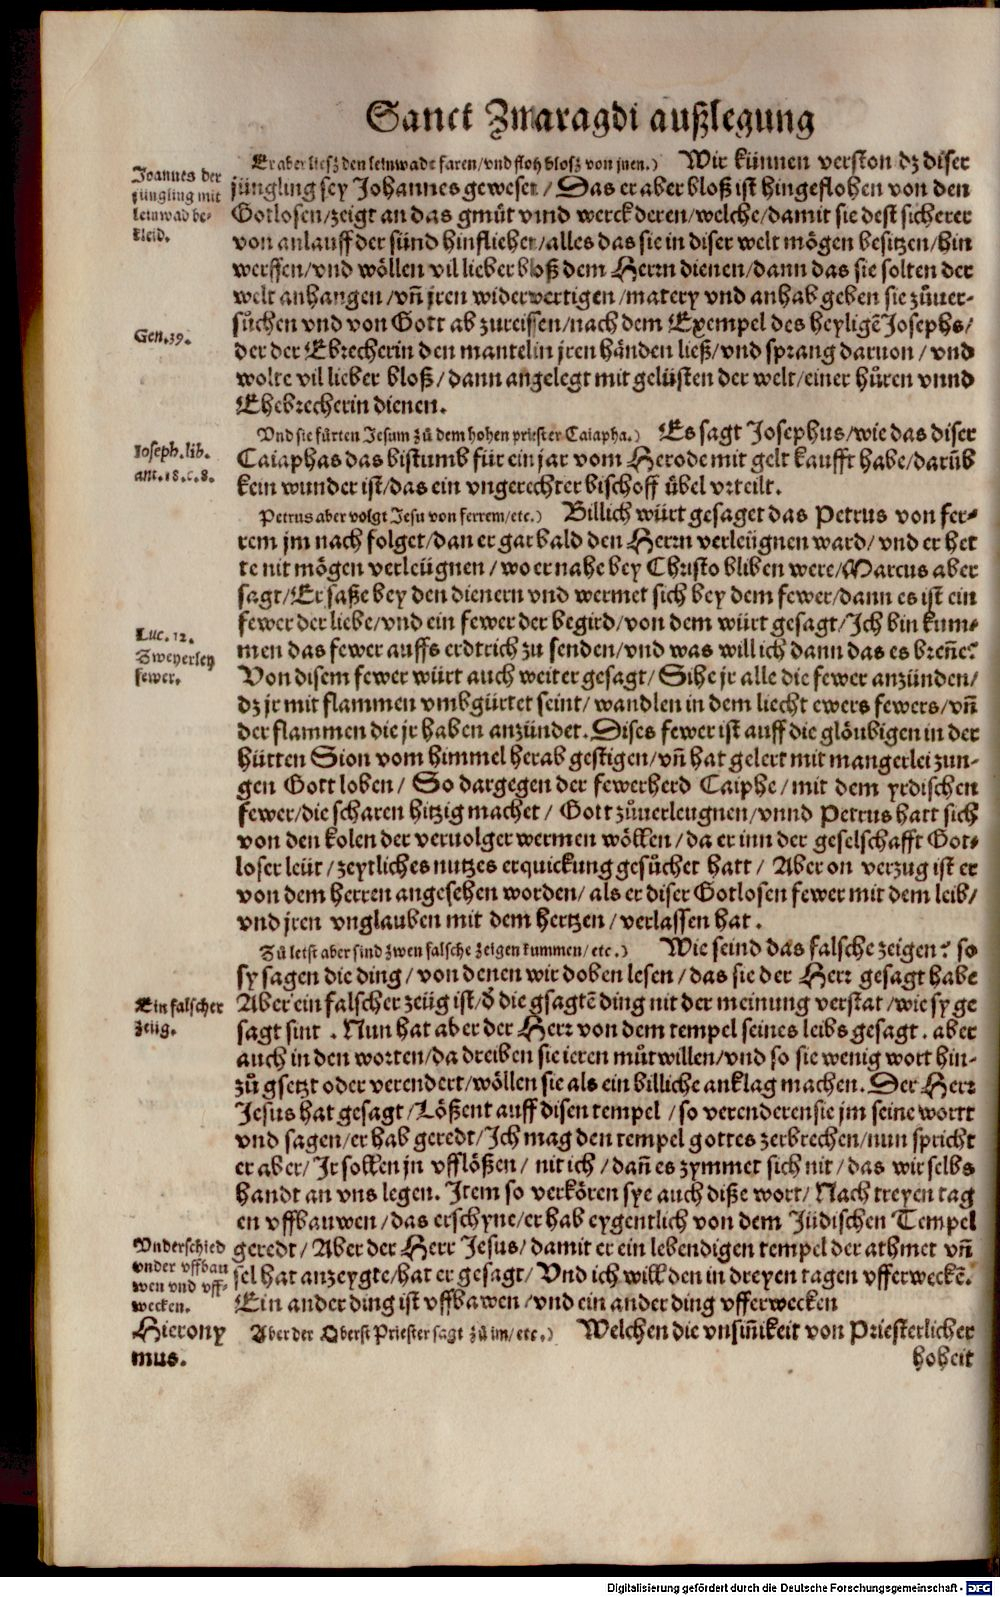 Sanct Zmaragdi außlegung
Joannes der
jüngling mit
leinwad be-
kleid.
Er aber liesz den leinwadt faren/vnd floh blosz von jnen.) Wir künnen verston dz diser
jüngling sey Johannes gewesen/Das er aber bloß ist hingeflohen von den
Gotlosen/zeigt an das gmüt vnnd werck deren/welche/damit sie dest sicherer
von anlauff der sünd hinfliehen/alles das sie in diser welt mögen besitzen/hin
werffen/vnd wöllen vil lieber bloß dem Herrn dienen/dann das sie solten der
welt anhangen/vñ jren widerwertigen/matery vnd anhab geben sie zůuer-
sůchen vnd von Gott ab zureissen/nach dem Exempel des heyligẽ Josephs/
Gen.39.
der der Ebrecherin den mantel in jren händen ließ/vnd sprang daruon/vnd
wolte vil lieber bloß/dann angelegt mit gelüsten der welt/einer hůren vnnd
Ehebrecherin dienen.
Joseph.lib.
ant.18.c.8.
Vnd sie fürten Jesum zů dem hohen priester Caiapha.) Es sagt Josephus/wie das diser
Caiaphas das bistumb für ein jar vom Herode mit gelt kaufft habe/darũb
kein wunder ist/das ein vngerechter bischoff übel vrteilt.
Petrus aber volgt Jesu von ferrem/etc.) Billich würt gesaget das Petrus von fer-
rem jm nach folget/dan er gar bald den Herrn verleügnen ward/vnd er het
te nit mögen verleügnen/wo er nahe bey Christo bliben were/Marcus aber
sagt/Er saße bey den dienern vnd wermet sich bey dem fewer/dann es ist ein
Luc.12.
Zweyerley
fewer.
fewer der liebe/vnd ein fewer der begird/von dem würt gesagt/Ich bin kum-
men das fewer auffs erdtrich zu senden/vnd was will ich dann das es breñe?
Von disem fewer würt auch weiter gesagt/Sihe jr alle die fewer anzünden/
dz jr mit flammen vmbgürtet seint/wandlen in dem liecht ewers fewers/vñ
der flammen die jr haben anzündet. Dises fewer ist auff die glöubigen in der
hütten Sion vom himmel herab gestigen/vñ hat gelert mit mangerlei zun-
gen Gott loben/So dargegen der fewerherd Caiphe/mit dem yrdischen
fewer/die scharen hitzig machet/Gott zůuerleugnen/vnnd Petrus hatt sich
von den kolen der veruolger wermen wöllen/da er inn der geselschafft Got-
loser leüt/zeytliches nutzes erquickung gesůchet hatt/Aber on verzug ist er
von dem herren angesehen worden/als er diser Gotlosen fewer mit dem leib/
vnd jren vnglauben mit dem hertzen/verlassen hat.
Zů letst aber sind zwen falsche zeigen kummen/etc.) Wie seind das falsche zeigen? so
sy sagen die ding/von denen wir doben lesen/das sie der Herr gesagt habe
Ein falscher
zeüg.
Aber ein falscher zeüg ist/d̄ die gsagtẽ ding nit der meinung verstat/wie sy ge
sagt sint. Nun hat aber der Herr von dem tempel seines leibs gesagt. aber
auch in den worten/da dreiben sie ieren můtwillen/vnd so sie wenig wort hin-
zů gsetzt oder verendert/wöllen sie als ein billiche anklag machen. Der Herr
Jesus hat gesagt/Lößent auff disen tempel/so verenderen sie jm seine wortt
vnd sagen/er hab geredt/Ich mag den tempel gottes zerbrechen/nun spricht
er aber/Ir sollen jn vfflößen/nit ich/dañ es zymmet sich nit/das wir selbs
handt an vns legen. Item so verkören sye auch diße wort/Nach treyen tag
en vffbauwen/das erschyne/er hab eygentlich von dem Jüdischen Tempel
Vnderschied
vnder vffbau
wen vnd vff-
wecken.
geredt/Aber der Herr Jesus/damit er ein lebendigen tempel der athmet vñ
sel hat anzeygte/hat er gesagt/Vnd ich will den in dreyen tagen vfferweckẽ.
Ein ander ding ist vffbawen/vnd ein ander ding vfferwecken
Hierony
mus.
Aber der Oberst Priester sagt zů im/etc.) Welchen die vnsiñikeit von Priesterlicher
hoheit
Digitalisierung gefördert durch die Deutsche Forschungsgemeinschaft - DFG